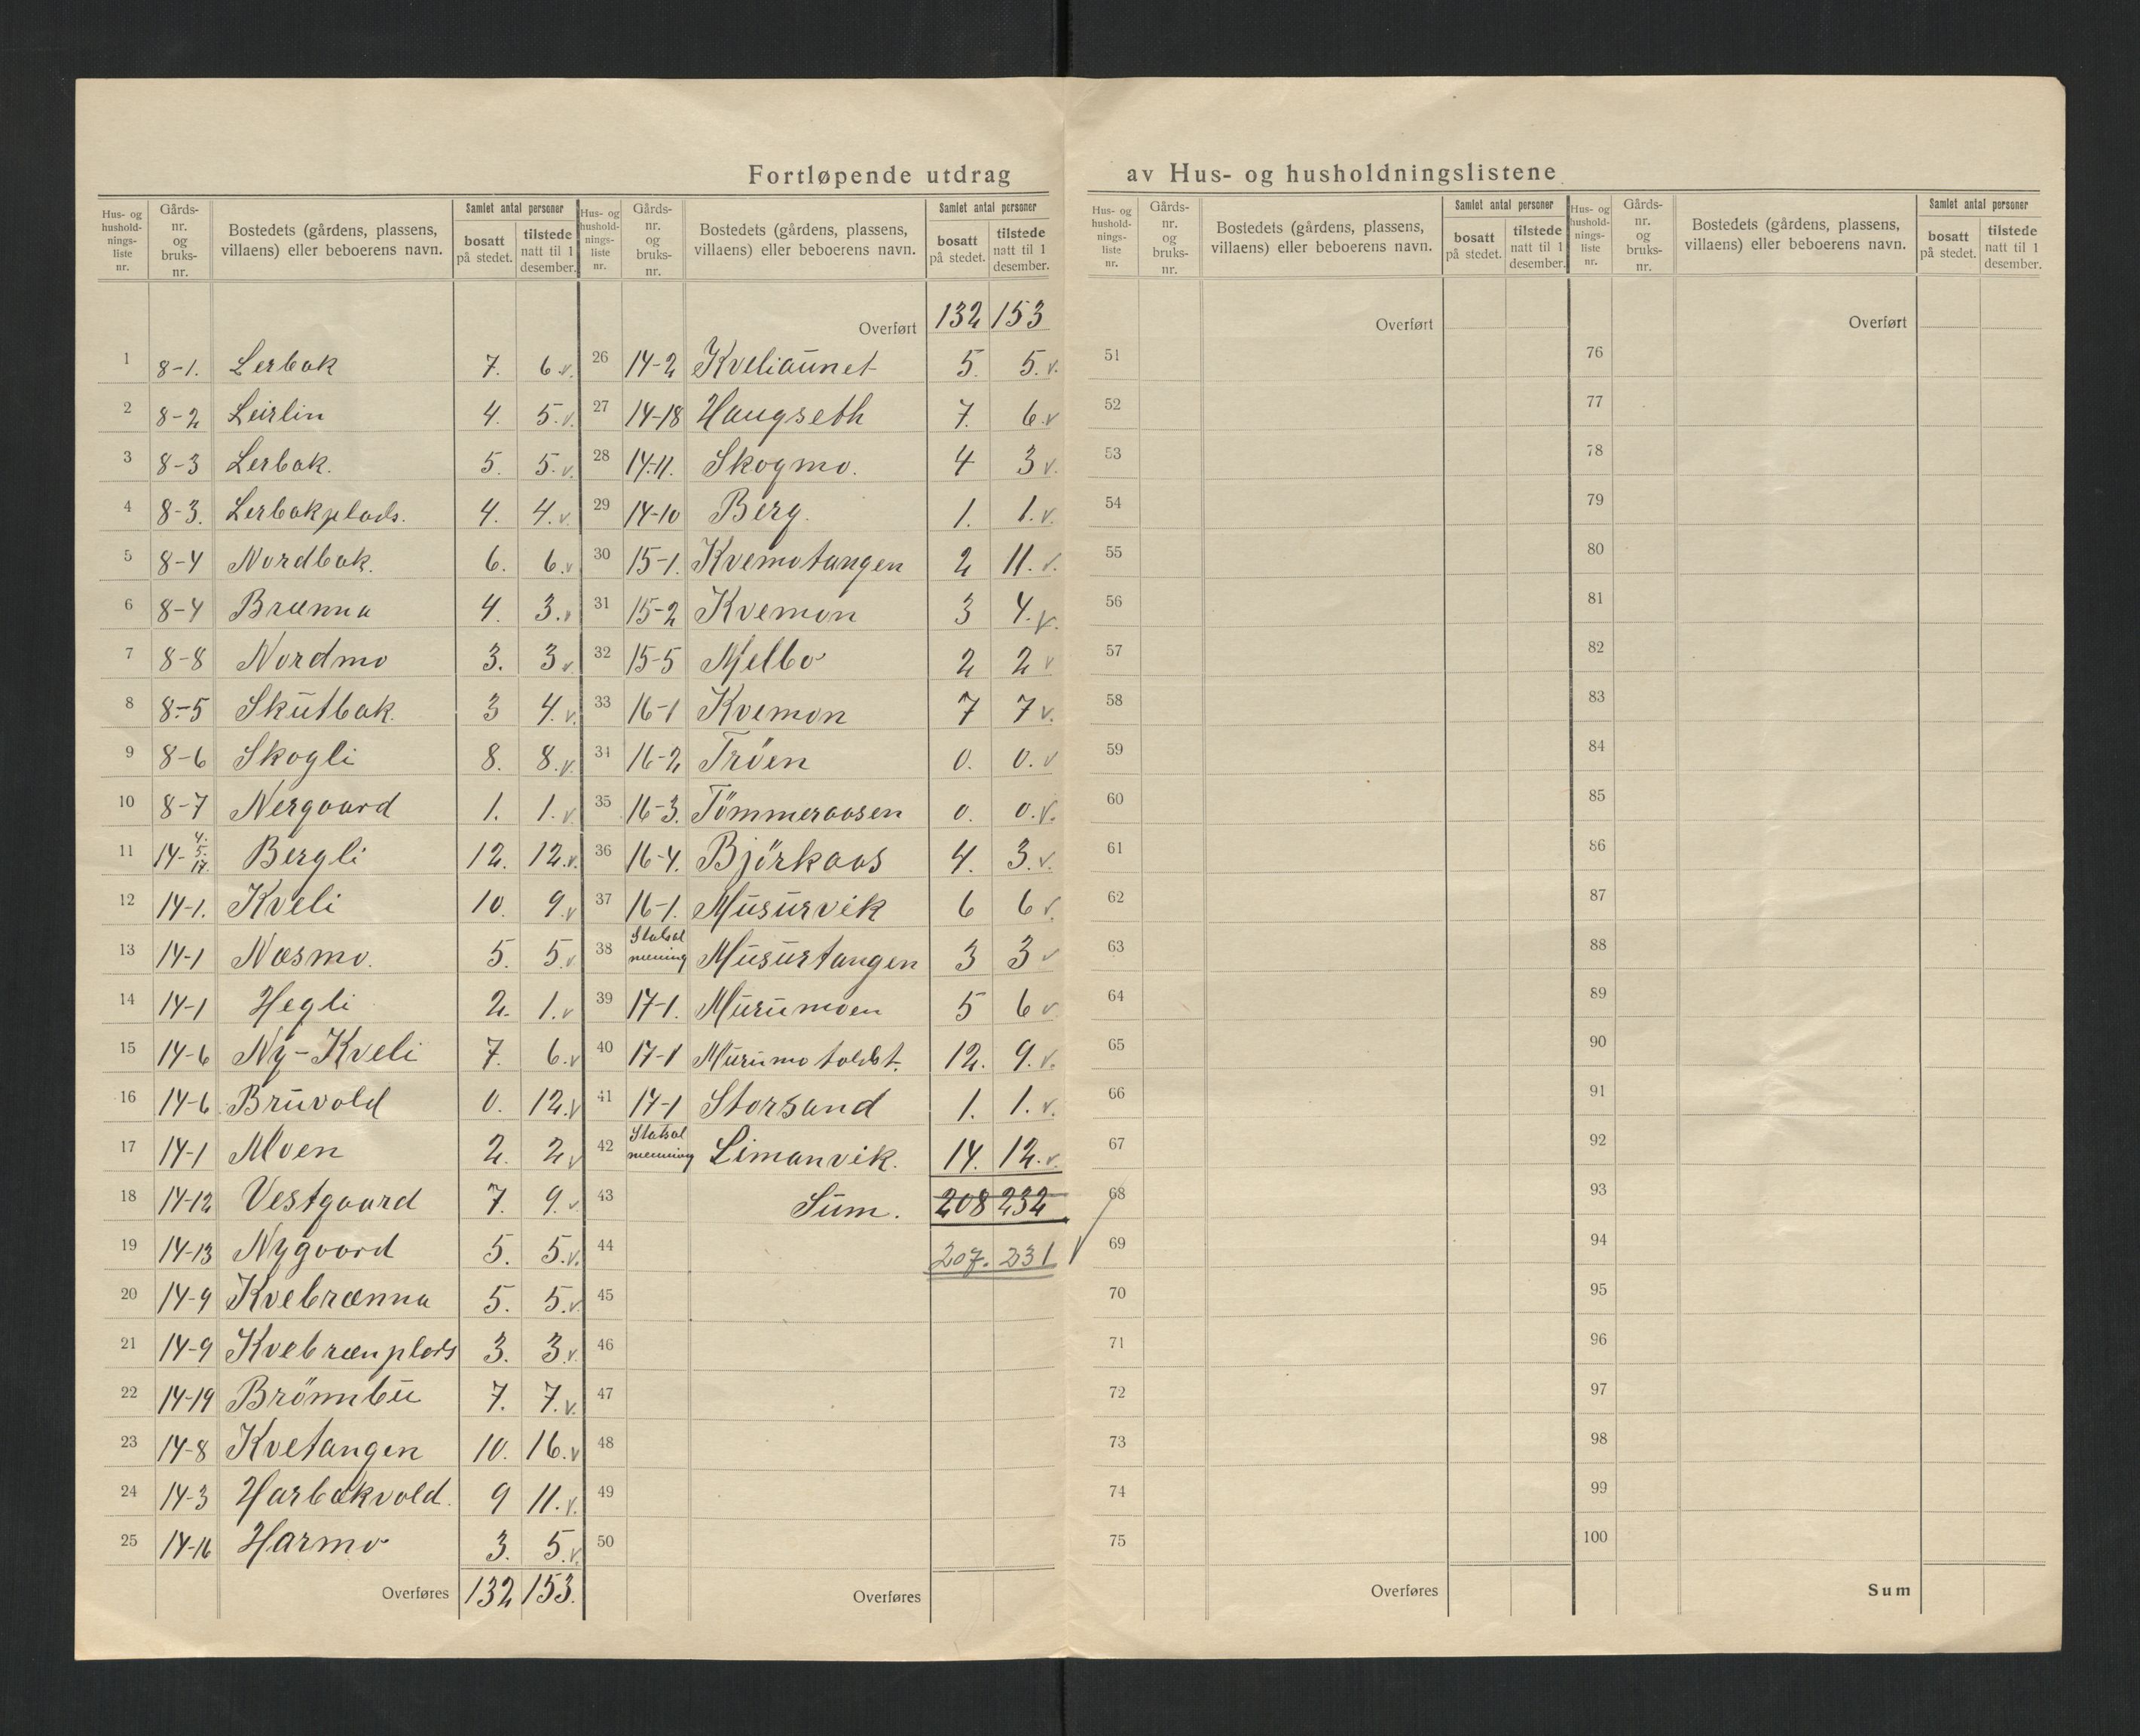 Fortløpende utdrag av Hus- og husholdningslistene
Hus- og hushold- nings- liste nr. | Gårds- nr. og bruks- nr. | Bostedets (gårdens, plassens, villaens) eller beboerens navn. | Samlet antal personer | bosatt på stedet. | tilstede natt til 1 desember.
1 8-1. Lerbak 7. 6 v.
2 8-2 Leirlin 4. 5. v.
3 8-3 Lerbak. 5. 5. v.
4 8-3. Lerbakplads. 4. 4. v.
5 8-4 Nordbak. 6. 6. v
6 8-4 Brænna 4. 3. v
7 8-8 Nordmo 3. 3 v
8 8-5 Skutbak. 3 4. v.
9 8-6 Skogli 8. 8. v.
10 8-7 Nergaard 1. 1. v
11 14- 4. 5. 17. Bergli 12. 12. v.
12 14-1. Kveli 10. 9. v
13 14-1 Næsmo. 5. 5. v
14 14-1 Hegli 2. 1. v
15 14-6 Ny-Kveli 7. 6. v
16 14-6 Bruvold 0. 12. v
17 14-1 Moen 2. 2 v
18 14-12 Vestgaard 7. 9. v
19 14-13 Nygaard 5. 5. v.
20 14-9 Kvebrænna 5. 5. v
21 14-9 Kvebrænplads 3. 3 v.
22 14-19 Brönnbu 7. 7. v.
23 14-8 Kvetangen 10. 16. v
24 14-3 Harbakvold. 9 11. v.
25 14-16 Harmo 3. 5. v.
Overføres 132 153.
Hus- og hushold- nings- liste nr. | Gårds- nr. og bruks- nr. | Bostedets (gårdens, plassens, villaens) eller beboerens navn. | Samlet antal personer | bosatt på stedet. | tilstede natt til 1 desember.
Overført 132 153
26 14-2 Kveliaunet 5. 5. v.
27 14-18 Haugseth 7. 6. v
28 14-11. Skogmo. 4 3 v.
29 14-10 Berg. 1. 1. v.
30 15-1. Kvemotangen 2 11. v.
31 15-2 Kvemon 3 4. v.
32 15-5 Mjelbo 2 2 v
33 16-1 Kvemon 7 7 v.
34 16-2 Tröen 0. 0. v
35 16-3. Tömmeraasen 0. 0. v.
36 16-4. Björkaas 4. 3. v.
37 16-1. Musurvik 6 6 v.
38 Statsal mening Musurtangen 3 3 v
39 17-1. Murumoen 5 6 v
40 17-1 Murumo toldst. 12. 9. v.
41 17-1 Storsand 1. 1. v.
42 Statsal menning Limanvik. 14. 12. v.
43 Sum. 208 232
44 207. 231 v
45
46
47
48
49
50
Overføres
Hus- og hushold- nings- liste nr. | Gårds- nr. og bruks- nr. | Bostedets (gårdens, plassens, villaens) eller beboerens navn. | Samlet antal personer | bosatt på stedet. | tilstede natt til 1 desember.
Overført
51
52
53
54
55
56
57
58
59
60
61
62
63
64
65
66
67
68
69
70
71
72
73
74
75
Overføres
Hus- og hushold- nings- liste nr. | Gårds- nr. og bruks- nr. | Bostedets (gårdens, plassens, villaens) eller beboerens navn. | Samlet antal personer | bosatt på stedet. | tilstede natt til 1 desember.
Overført
76
77
78
79
80
81
82
83
84
85
86
87
88
89
90
91
92
93
94
95
96
97
98
99
100
Sum